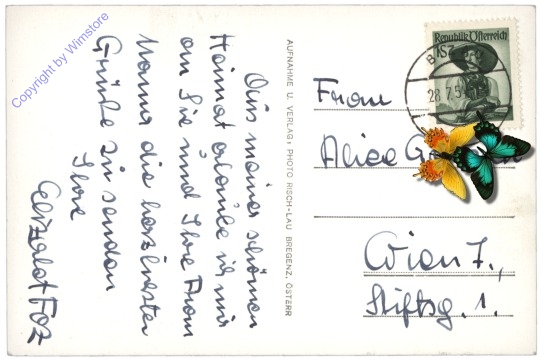 Aus meiner schönen
Heimat erlaube ich mir
an Sie und Ihre Frau
Mama die herzlichsten
Grüße zu senden
Ihre
AUFNAHME U. VERLAG: PHOTO RISCH-LAU BREGENZ, ÖSTERR
Republik Österreich
1S
28.7.5
Frau
Alice
Wien 7.,
Stiftsg. 1.
Copyright by Wimstore